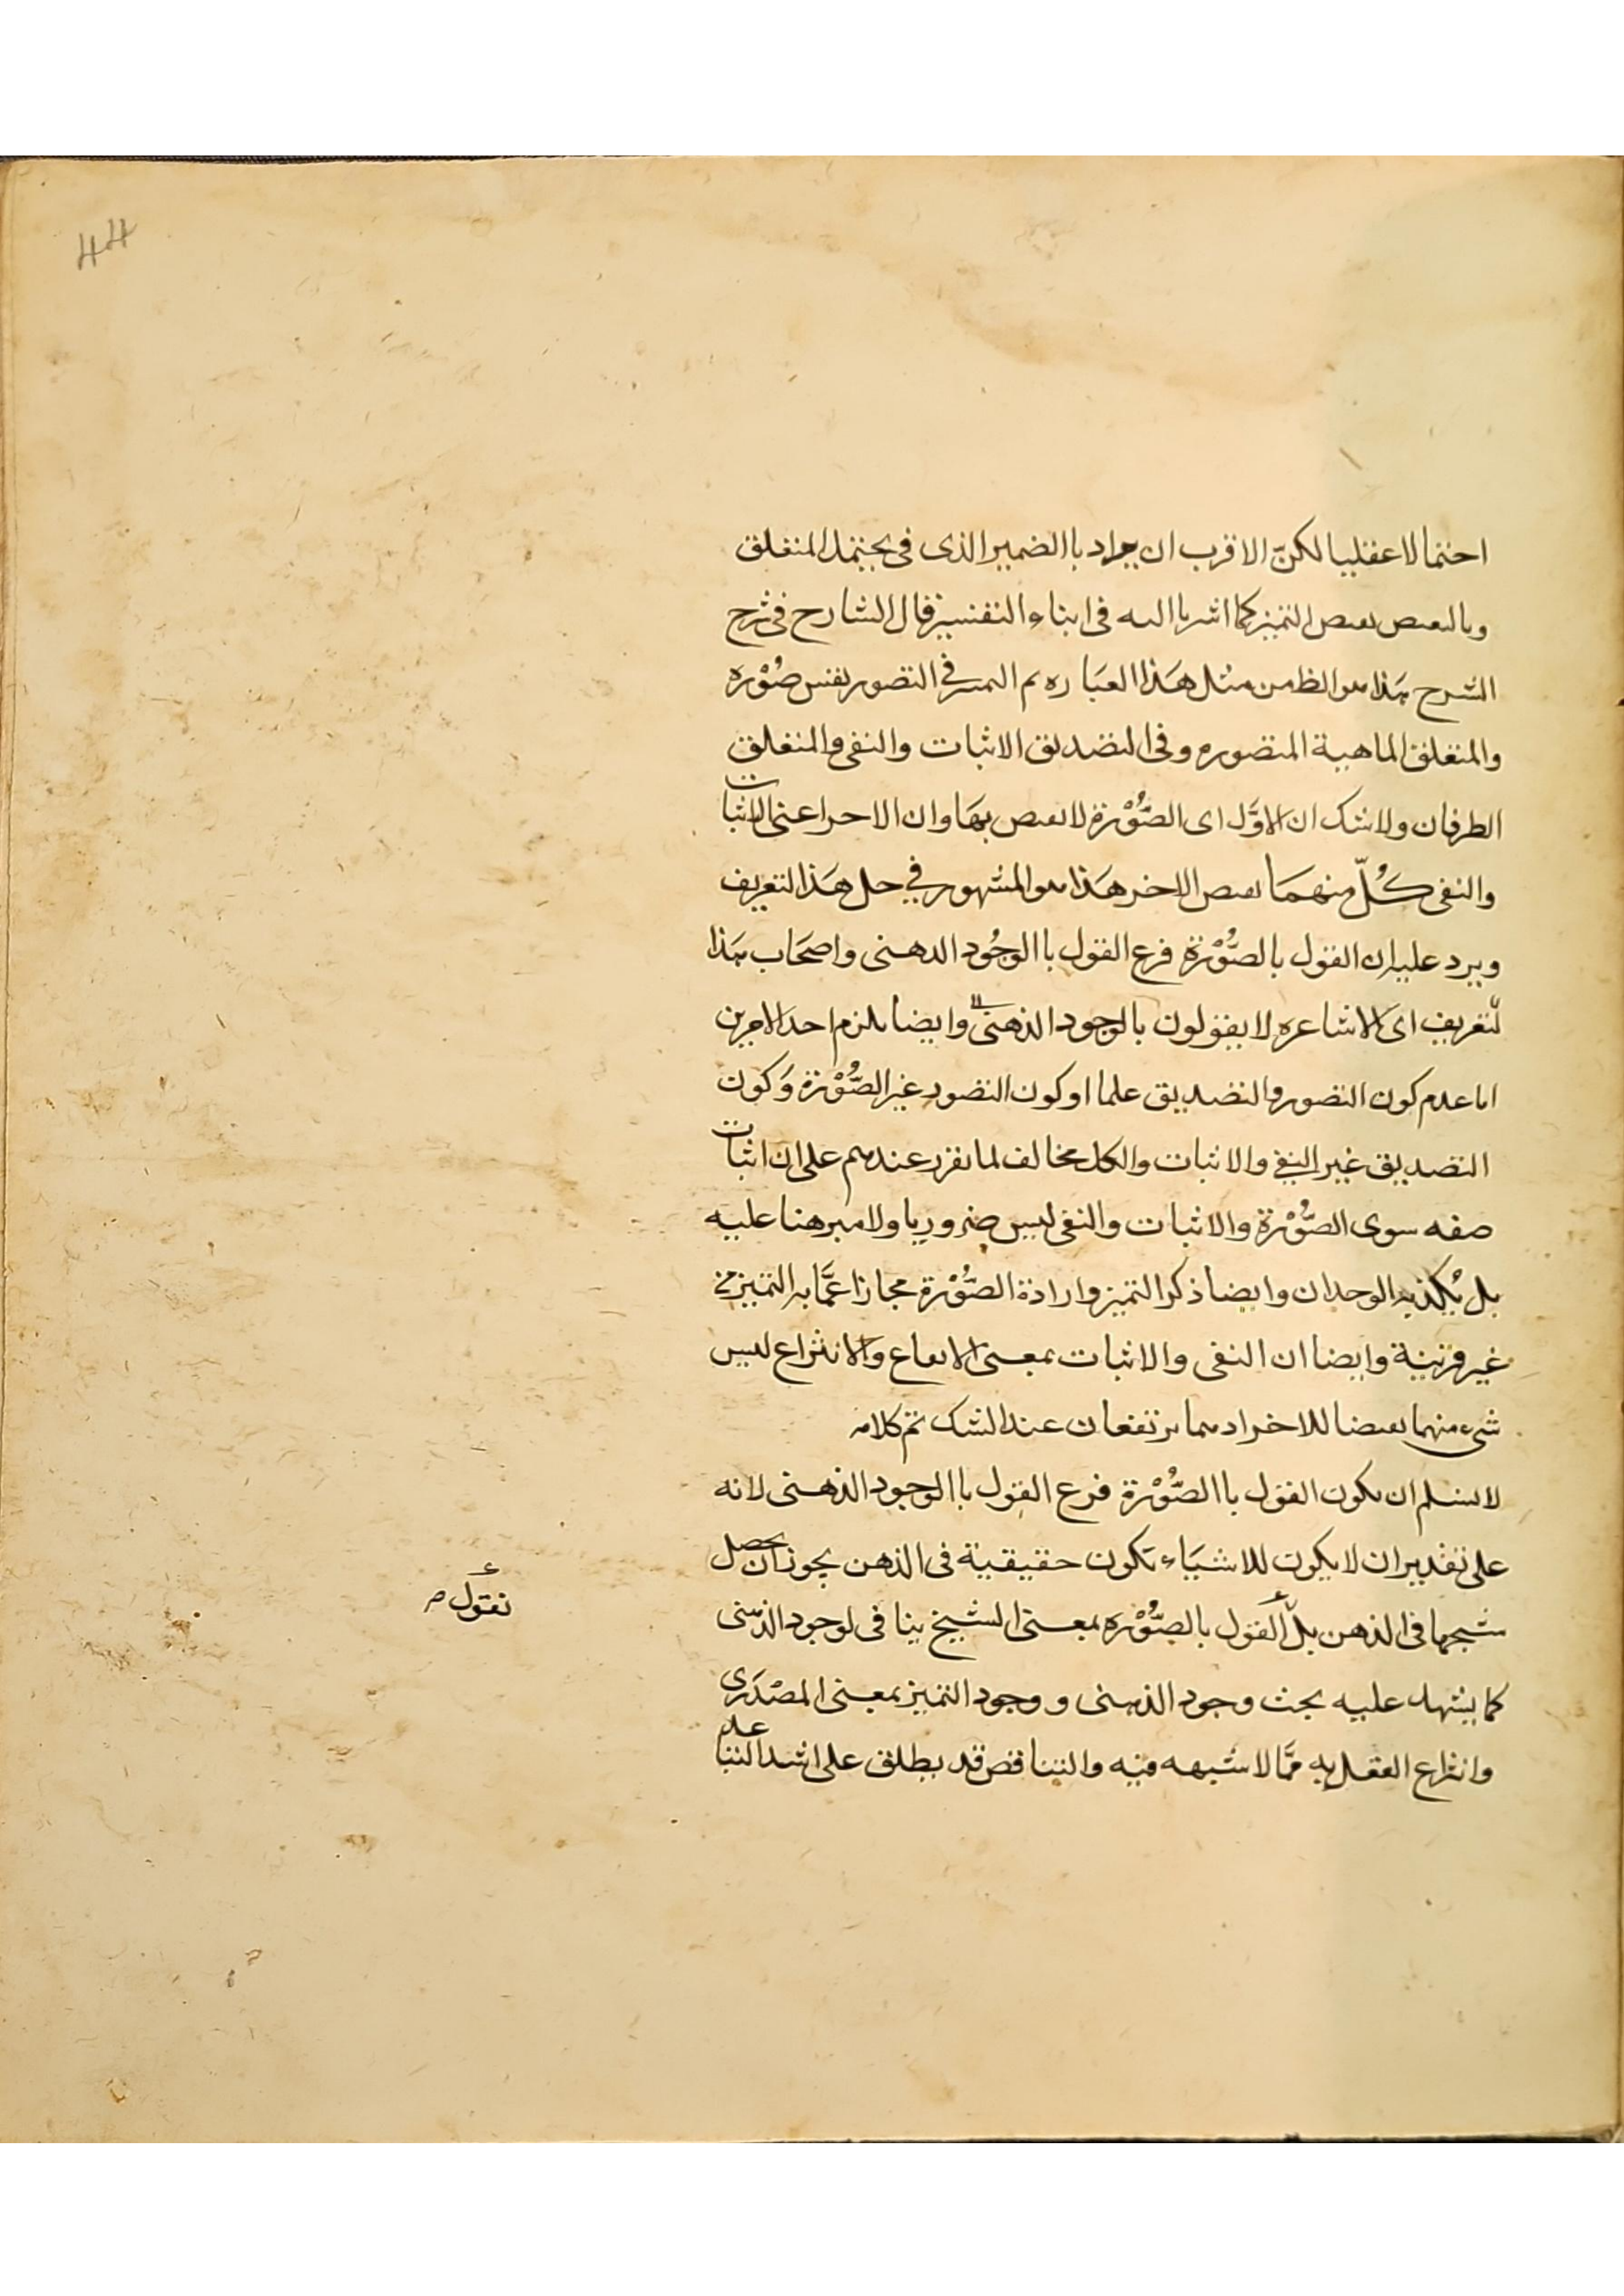 44
احتمالا عقليا لكنّ الاقرب ان يراد باالضمير الذى فى يحتمل المتعلق
وبالنقيض نقيض التميز كما اشرنا اليه فى اثناء التفسير قال الشارح فى شرح
الشرح هذا هو الظ من مثل هَذا العبَاره ثم التميز فى التصور نفس صُوْره
والمتعلق الماهية المتصوره وفى التصديق الاثبات والنفى والمتعلق
الطرفان ولاشك ان الاوَّل اى الصُّوْرة لا نقيض بهَا وان الاخر اعنى الاثبات
والنفى كُلّ منهمَا نقيض الاخر هَذا هو المشهور فى حل هَذا التعريف
ويرد عليه ان القول بالصُّوْرة فرع القول باالوجُود الذهنى واصحَاب هَذا
لتعريف اى الاشاعره لا يقولون بالوجود الذهنى وايضا يلزم احد الامرين
اما عدم كون التصور والتصديق علما او كون التصور غير الصُّوْرة وَكون
التصديق غير النفى والاثبات والكل مخالف لما تقرر عندهم على ان اثبات
صفه سوى الصُّوْرة والاثبات والنفى ليس ضروريا ولا مبرهنا عليه
بل يُكذبه الوجدان وايضا ذكر التميز وارادة الصُّوْرة مجازا عمَّا به التميز من
غير قرينة وايضا ان النفى والاثبات بمعنى الايقاع والانتزاع ليس
شىء منهما نقيضا للاخر اذ هما يرتفعان عند الشك تم كلامه
لا نسلم ان يكون القول باالصُّوْرة فرع القول باالوجود الذهنى لانه
على تقدير ان لا يكون للاشيَاء تكون حقيقية فى الذهن يجوز ان يحصل
شبحها فى الذهن بل القول بالصُّوْره بمعنى الشبح ينا فى لوجود الذهنى
نقول
كما يشهد عليه بحث وجود الذهنى و وجود التميز بمعنى المصْدَرى
وانتزاع العقل به ممَّا لا شبهه فيه والتناقض قد يطلق على اشد التباعد